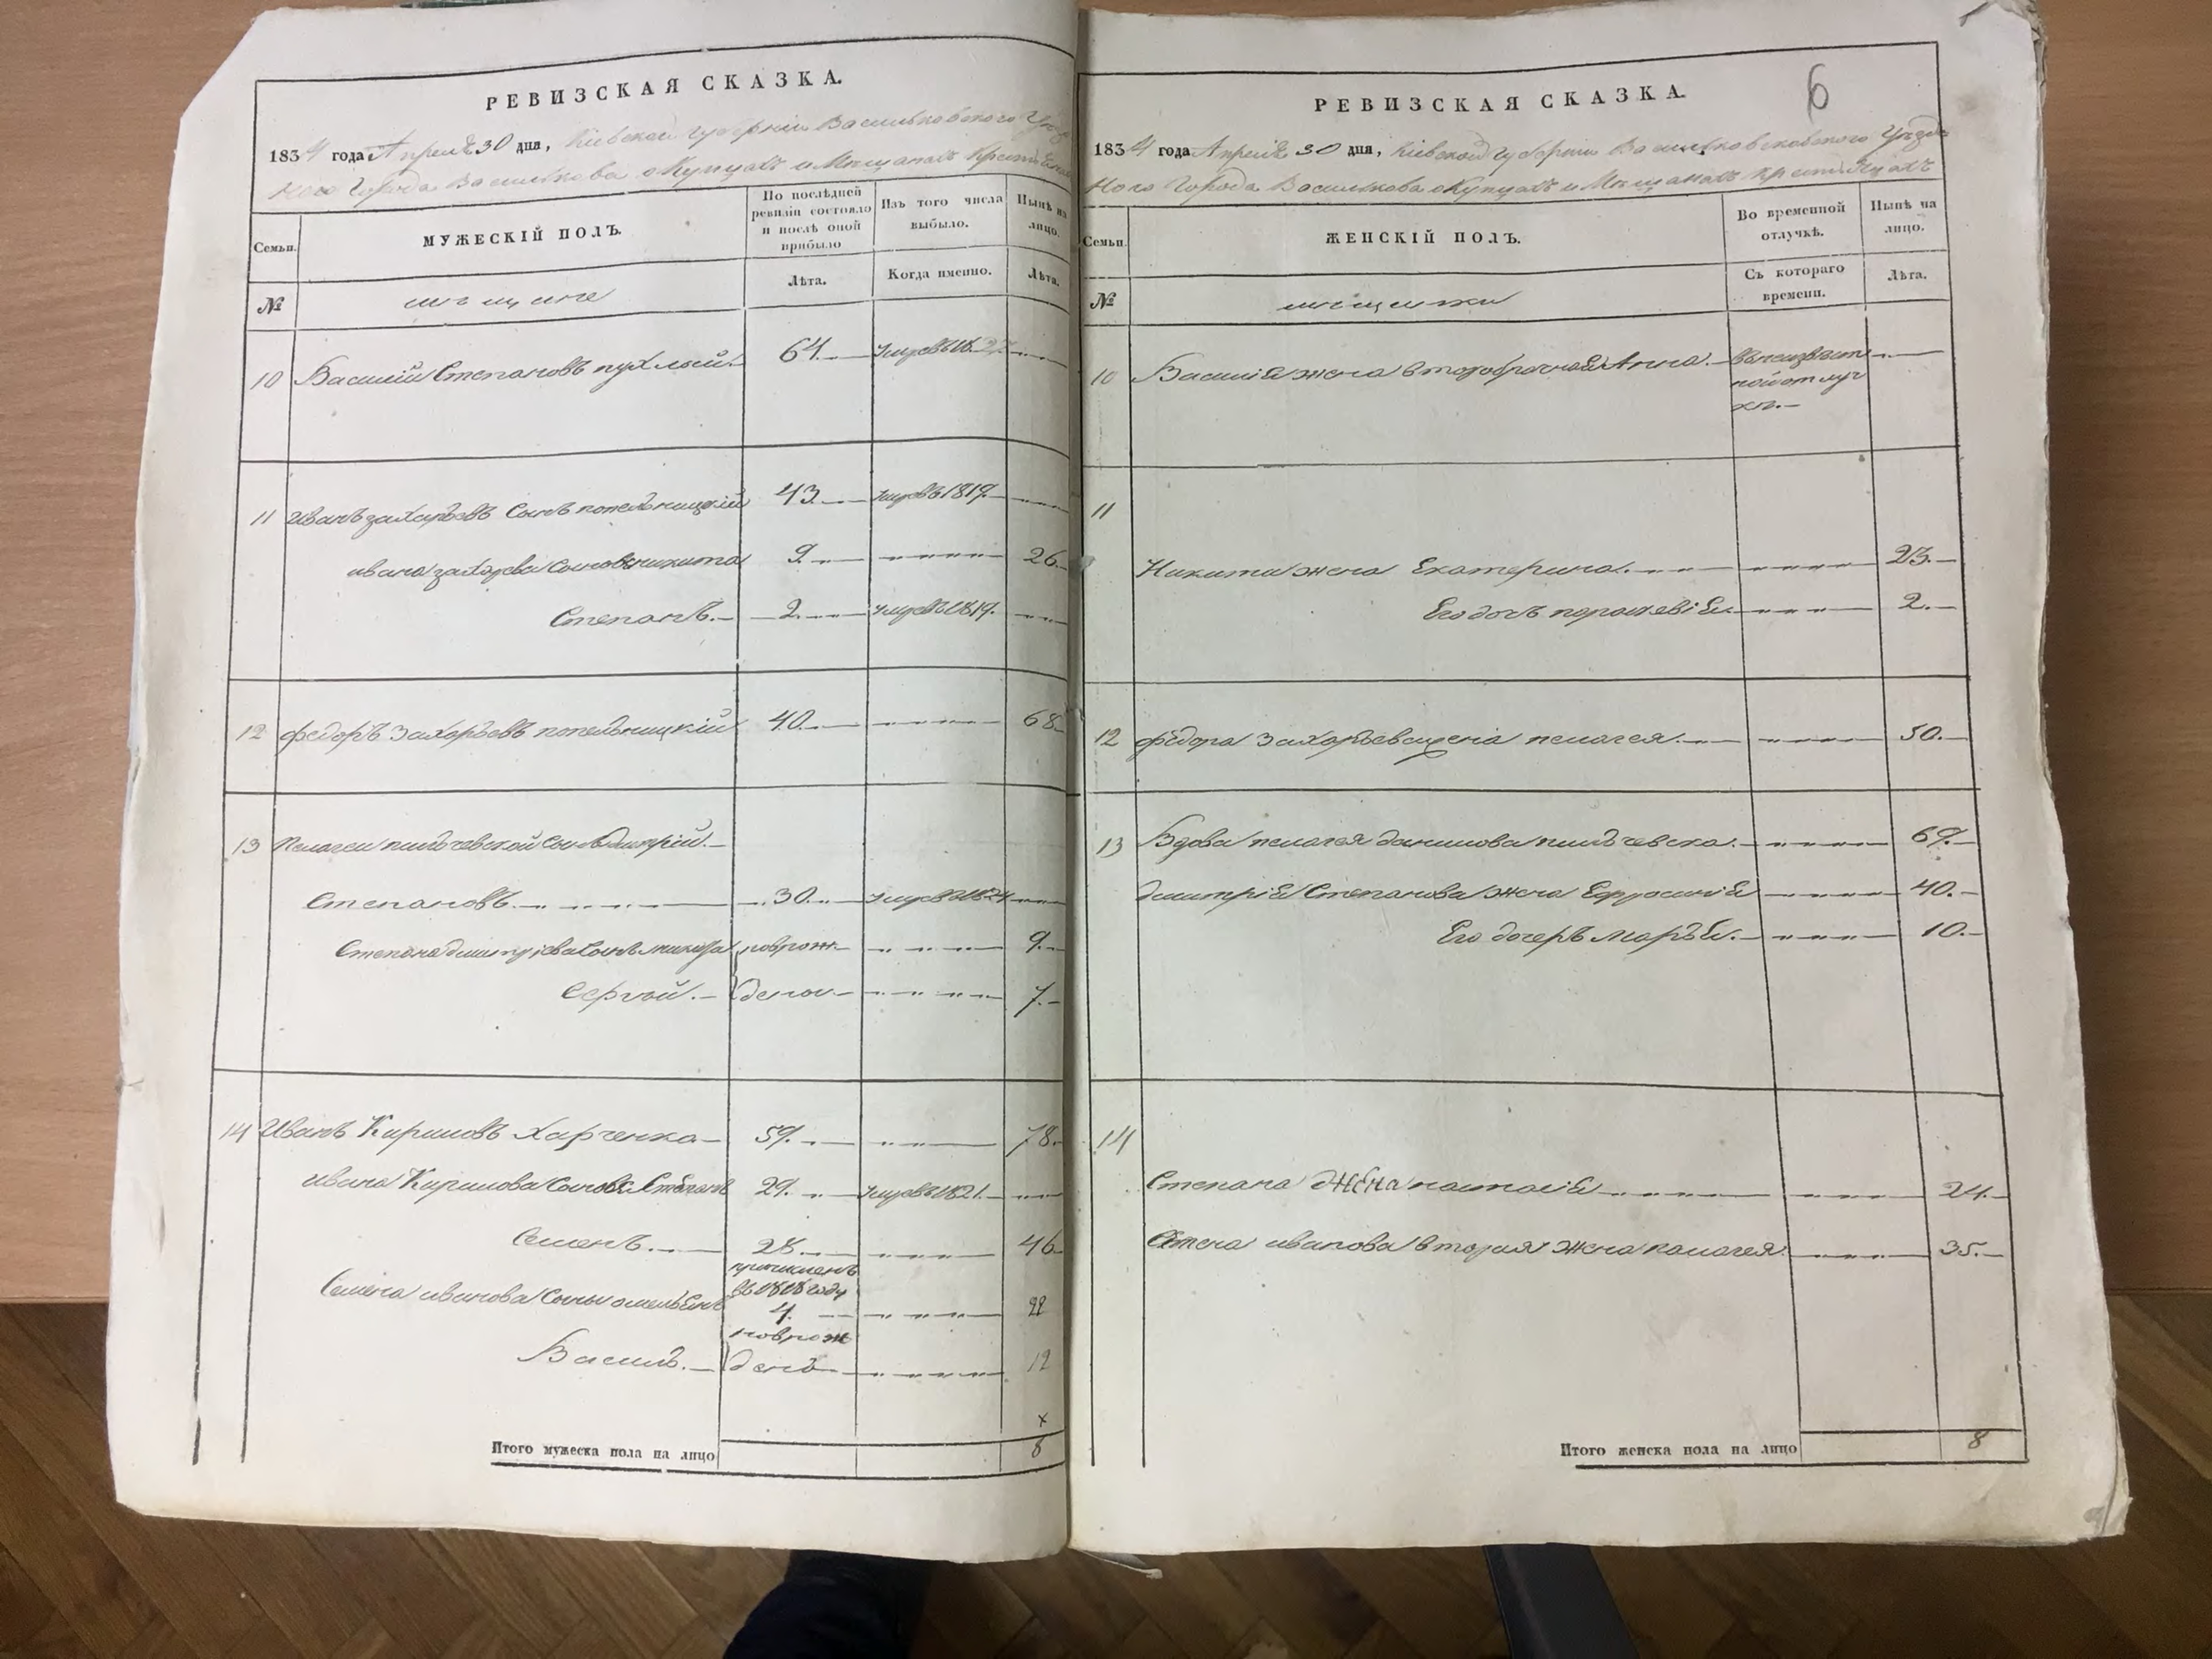 РЕВИЗСКАЯ СКАЗКА.
1834 года Апреля 30 дня, Кіевской губерніи Васильковского
Города Василькова о Купцахъ и Мѣщанахъ
Семьи.
МУЖЕСКІЙ ПОЛЪ.
По послѣдней ревизіи состояло и послѣ оной прибыло
Изъ того числа выбыло.
Нынѣ на лицо.
Лѣта.
Когда именно.
Лѣта.
№
мѣщане
10 Василій Степановъ пухлый. 64. умревъ 18
11 Иванъ захарьевъ Сынъ 43. умревъ 1819.
ивана захарева сыновя никита 9. 26.
Степанъ. 2. умревъ 1819.
12 федоръ Захарьевъ попельницкій 40. 68
13 Пелагеи сынъ дмитрій.
Степановъ. 30. умревъ 1824
Степана дмитріева Сынъ новрож 9.
Сергѣй. дены 7.
14 Иванъ Кириловъ Харченко 59. 78.
ивана Кирилова сыновя Степанъ 29. умревъ 1821.
Семенъ. 28. 46
причисленъ
въ 1818 году
Семена иванова Сыны омельянъ 4. 22
новрож
Василь. денъ 12
х
Итого мужеска пола на лицо 8
6
РЕВИЗСКАЯ СКАЗКА.
1834 года Апреля 30 дня, Кіевской губерніи Васильковского
Города Василькова о Купцахъ и Мѣщанахъ
Семьи.
ЖЕНСКІЙ ПОЛЪ.
Во временной отлучкѣ.
Нынѣ на лицо.
Съ котораго времени.
Лѣта.
№
мѣщанки
10 Василія жена второбрачная Анна. въ неизвѣст
ной отлуч
кѣ.
11
Никиты жена Екатерина. 23.
Его дочь парасковія. 2.
12 федора Захарьева жена пелагея. 50.
13 Вдова пелагея данилова 69.
дмитрія Степанова жена Ефросинія 40.
Его дочерь марья. 10.
14
Степана жена настасія 24.
иванова вторая жена палагея 35.
Итого женска пола на лицо 8